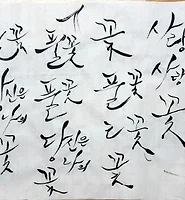 꽃
당신은
나의
꽃
풀꽃
풀꽃
당신은
나의
꽃
꽃
풀꽃
꽃
꽃
사랑
사랑
꽃